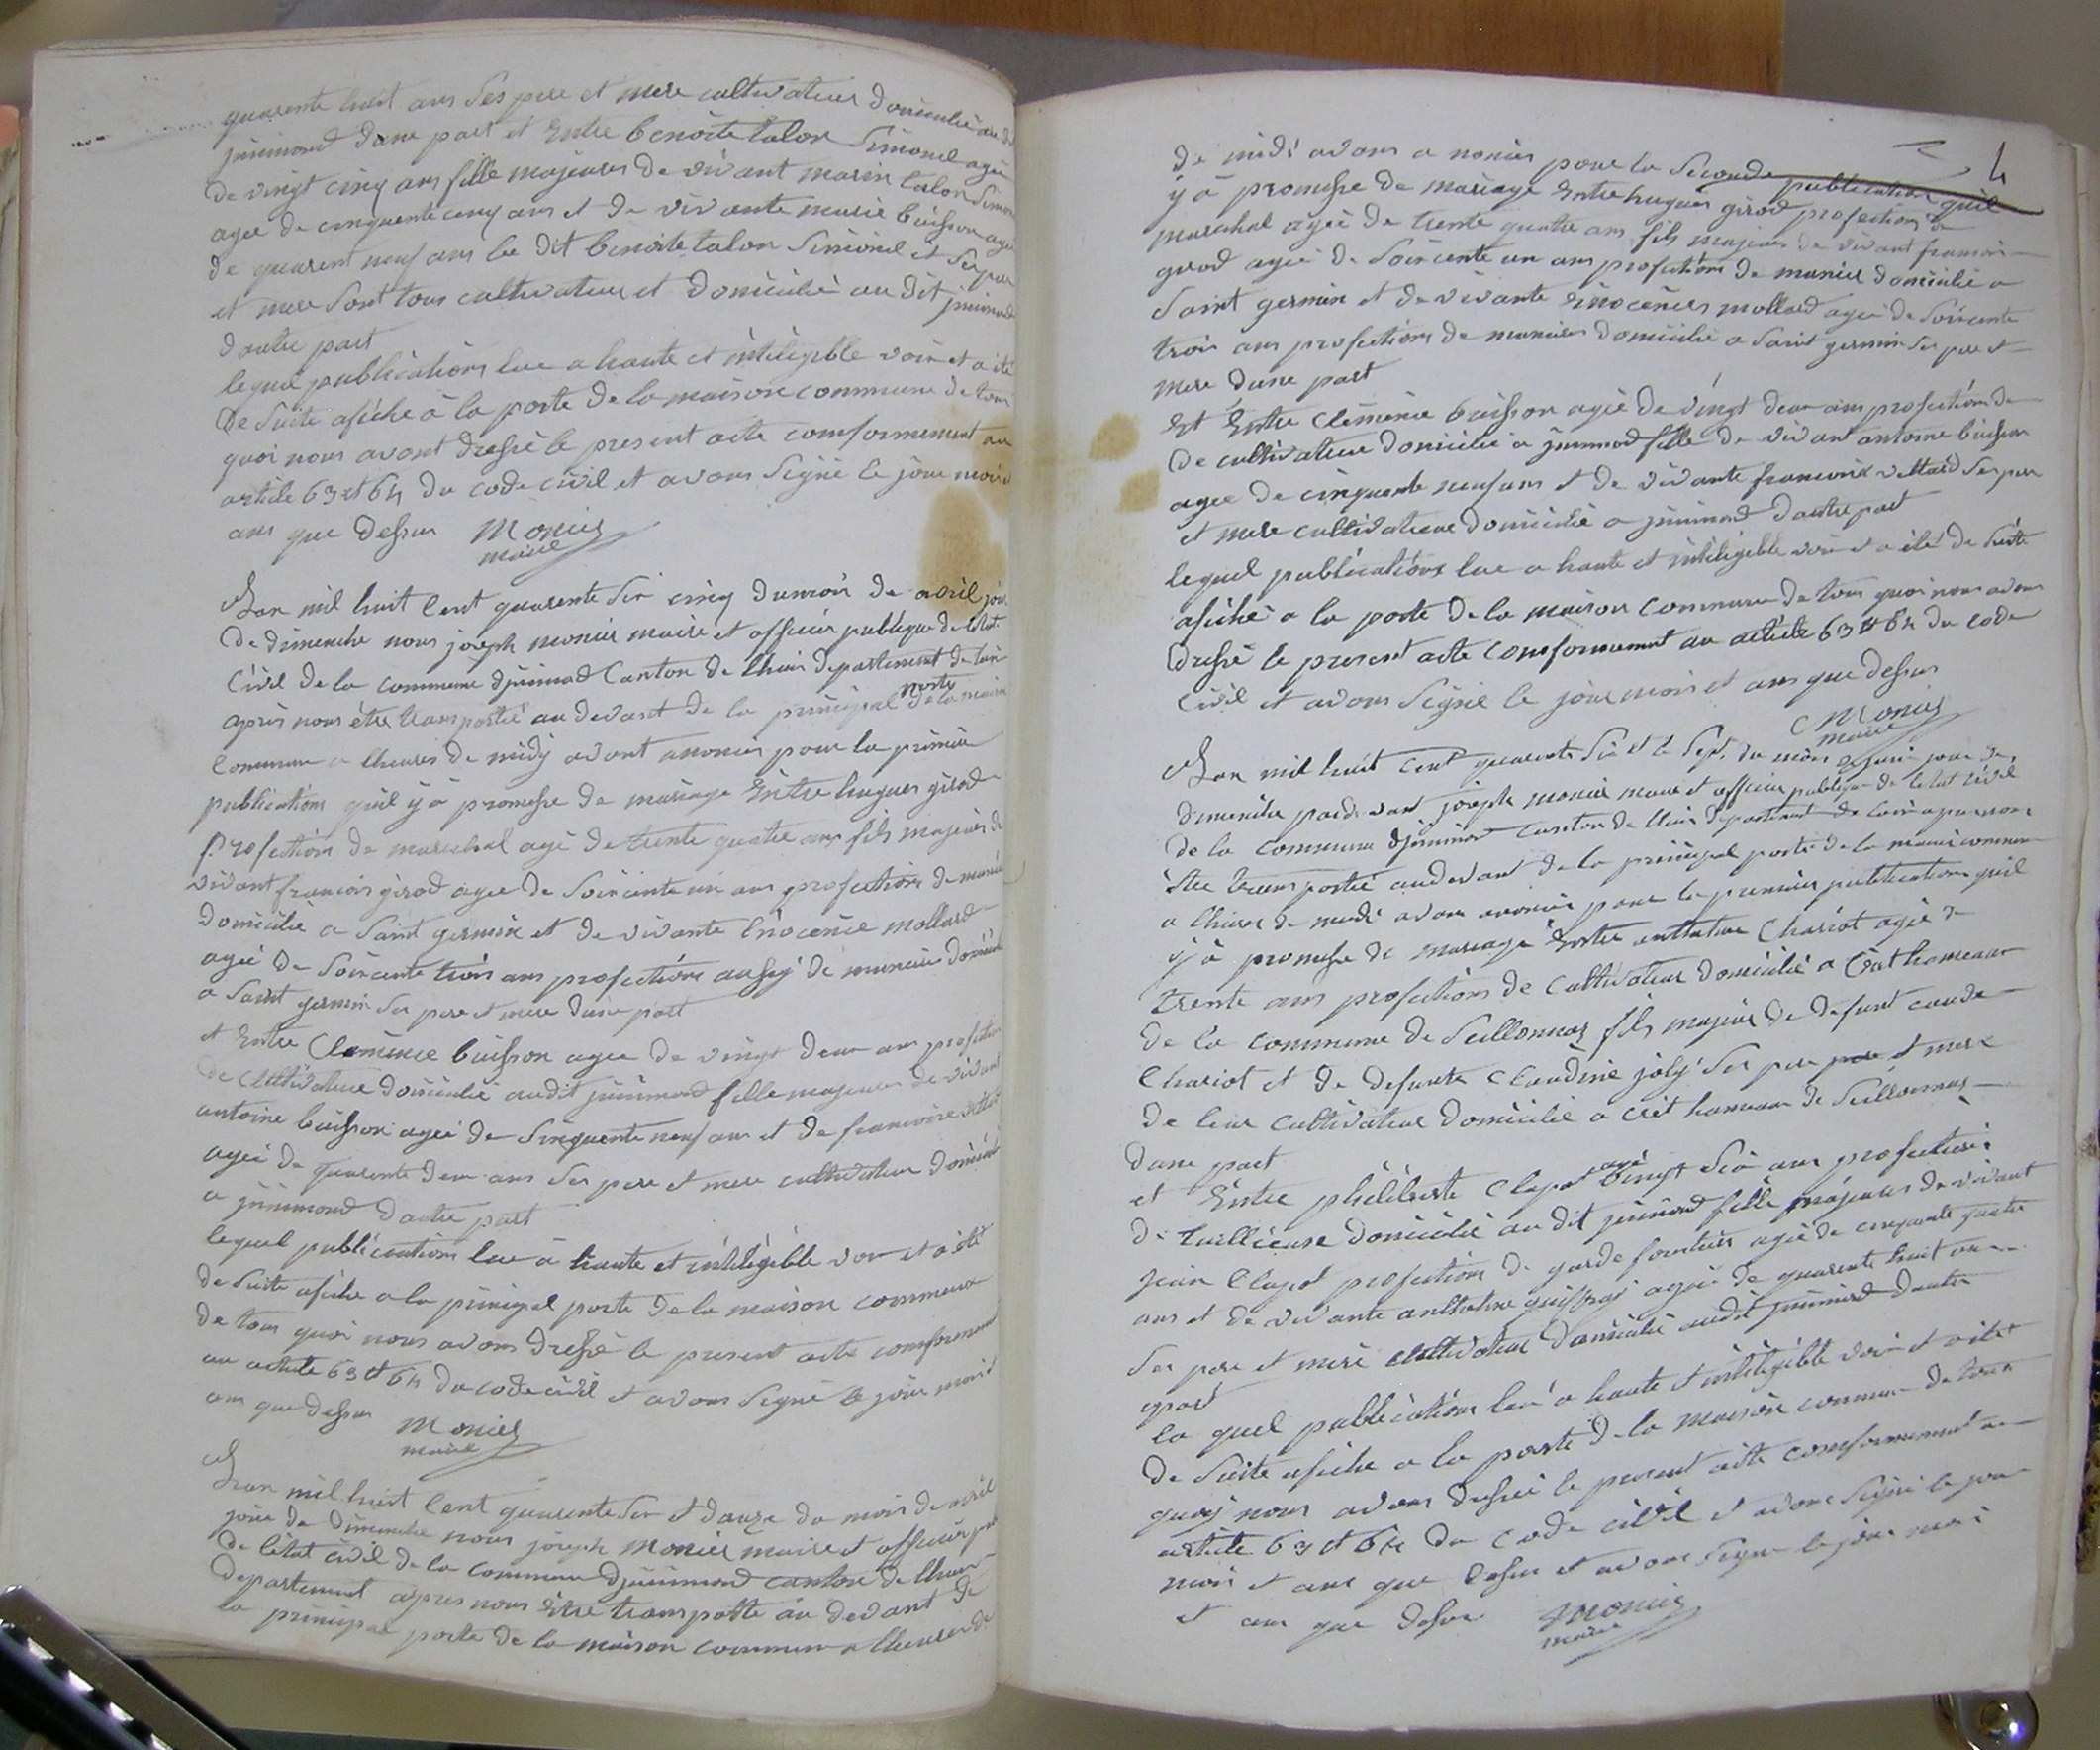 quarente huit ans Ses pere et mere cultivateur domicilié au dit
jnnimond dune part et Entre benoite talon Simonel agée
de vingt cinq ans fille majeures de vivant marin talon Simonel
agee de cinquente cinq ans et de vivante marie buisson agée
de quarent neuf ans la dit benoite talon Simonel et Ses pere
et mere Sont tous cultivateur et domicilié au dit jnnimond
dautre part
lequel publications lue a haute et inteligible voix et a été
De Suite afiche à la porte de la maison commune de tous
quoi nous avont dressé le present acte comformement au
article 63 et 64 du code civil et avons Signé le jour mois et
ans que dessus Monier
maire
Lan mil huit Cent quarente Six cinq du mois de avril jour
de dimenche nous joseph monier maire et officier publique de létat
Civil de la commune djnnimond Canton de lhuis departement de lain
porte
apres nous être transporté au devant de la principal de la maison
commune a lheures de midy avont anoncer pour la premier
publications quil y à promesse de mariage Entre hugues girod
profections de marechal agé de trente quatre ans fils majeurs de
vivant francois girod agee de Soixcente un ans profections de munier
domicilié a Saint germin et de vivante Enocence mollard
agée de Soixcente trois ans profections aussy de munier domicilié
a Saint germin Ses pere et mere dune part
et Entre Clemence buisson agee de vingt deux ans profections
de Cultivateur domicilié audit jnnimond fille majeures de vivant
antoine buisson agée de Sinquente neuf ans et de francoise vettard
agée de quarente deux ans Ses pere et mere cultivateur domicilié
a jnnimond dautre part
lequel publications lue à haute et inteligible voix et a été
de Suite afiche a la principal porte de la maison commune
de tous quoi nous avons dressé le present acte comformement
au article 63 et 64 du code civil et avons Signé le jour mois et
ans que dessus Monier
maire
Lan mil huit Cent quarente Six et douze du mois de avril
jour de dimenche nous joseph Monier maire et officier pub
de létat civil de la commune djnnimond canton de lhuis
departement apres nous Etre transporté au devant de
la principal porte de la maison commune a lheures de
4
de midi avons a noncer pour la Seconde publication quil
y à promesse de mariage Entre hugues girod profections de
marechal agée de trente quatre ans fils majeur de vivant francois
girod agée de Soixcente un ans profections de munier domicilié a
Saint germin et de vivante Enocences mollard agée de Soixcente
trois ans profections de munier domicilié a Saint germin Ses pere et
mere dune part
Et Entre Clemence buisson agée de vingt deux ans profections de
de cultivateur domicilié a jnnimond fille de vivant antoine buisson
agee de cinquente neuf ans et de vivante francoise vettard Ses pere
et mere cultivateur domicilié a jnnimond dautre part
lequel publications lue a haute et inteligible voix et a été de Suite
afiché a la porte de la maison commune de tous quoi nous avons
dressé le present acte comformement au article 63 et 64 du code
Civil et avons Signé le jour mois et ans que dessus
Monier
maire
Lan mil huit cent quarente Six et le Sept du mois de juin jour de
dimenche pardevant joseph monier maire et officier publique de letat civil
de la commune djnnimond canton de lhuis departement de lain apres nous
être transporté audevant de la principal porte de la maison commune
a lheure de midi avons anoncer pour la premier publications quil
y à promesse de mariage Entre anthelme Chariot agée de
trente ans profections de Cultivateur domicilié a Crét hameau
de la commune de Seillonnas fils majeur de defunt caude
Chariot et de defunte Claudine joly Ses pere pere et mere
de leur cultivateur domicilié a crét hameau de Seillonnas
dune part
agé
et Entre philiberte Clapot vingt Six ans profections
de taillieuse domicilié au dit jnnimond fille majeures de vivant
jean Clapot profections de garde forestier agée de cinquente quatre
ans et de vivante anthelme agée de quarente huit ans
Ses pere et mere cultivateur domicilié audit jnnimond dautre
part
la quel publications lue a haute et inteligible voix et a été
de Suite afiche a la porte de la maison commune de tous
quoy nous avons dressé le present acte comformement au
article 63 et 64 du Code civil et avons Signé le jour
mois et ans que desus et avons Signe le jour mois
et ans que desus Monier
maire